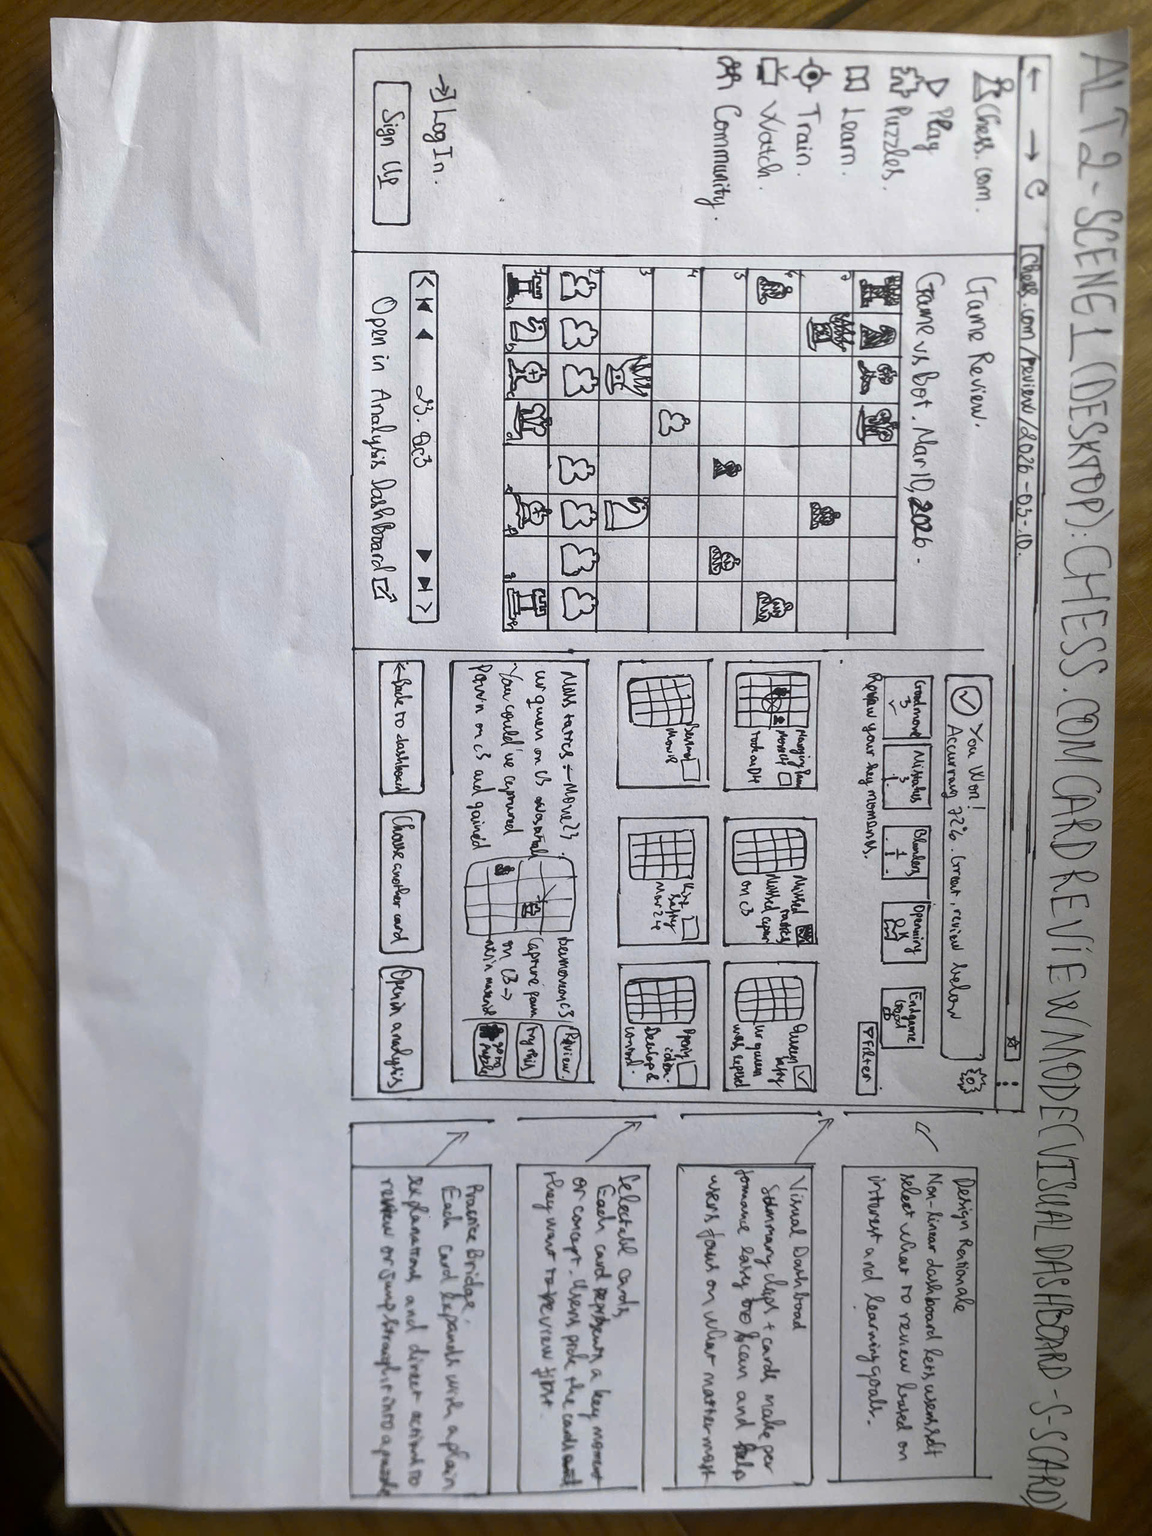 ALT 2 - SCENE 1 (DESKTOP): CHESS.COM CARD REVIEW MODE (VISUAL DASHBOARD - S-SCARD)
← → C
chess.com/review/2026-03-10.
Chess.com.
Play
Puzzles.
Learn.
Train.
Watch.
Community.
Log In.
Sign Up
Game Review.
Game vs Bot. Mar 10, 2026.
7
6
5
4
3
2
1
23. Qc3
Open in Analysis Dashboard
You Won!
Accuracy 72%. Great, review below
Good moves
3
Mistakes
3
Blunders
1
Openning
Endgame
Good
Review your key moments.
Filter
Hanging
Move
rook on D4
Missed tactics
Missed
on c3
Queen safety
ur queen
was exposed
Move
King safety
Mov 24
Develop &
control.
Miss tactics - Move 23.
ur queen on
You could've captured
Pawn on c3 and gained
Capture pawn
on c3 →
Review.
Try this
go to puzzle
← Back to dashboard
Choose another card
Open in analysis
Design Rationale
Non-linear dashboard lets users
select what to review based on
interest and learning goals.
Visual Dashboad
Summary + cards make per
formance easy to scan and help
users focus on what matter most
Selectable cards
Each card represents a key moment
or concept. Users the cards
they want to review first.
Practice Bridge.
Each card expands with a plain
explanation, and direct action to
review or jump straight into a puzzle